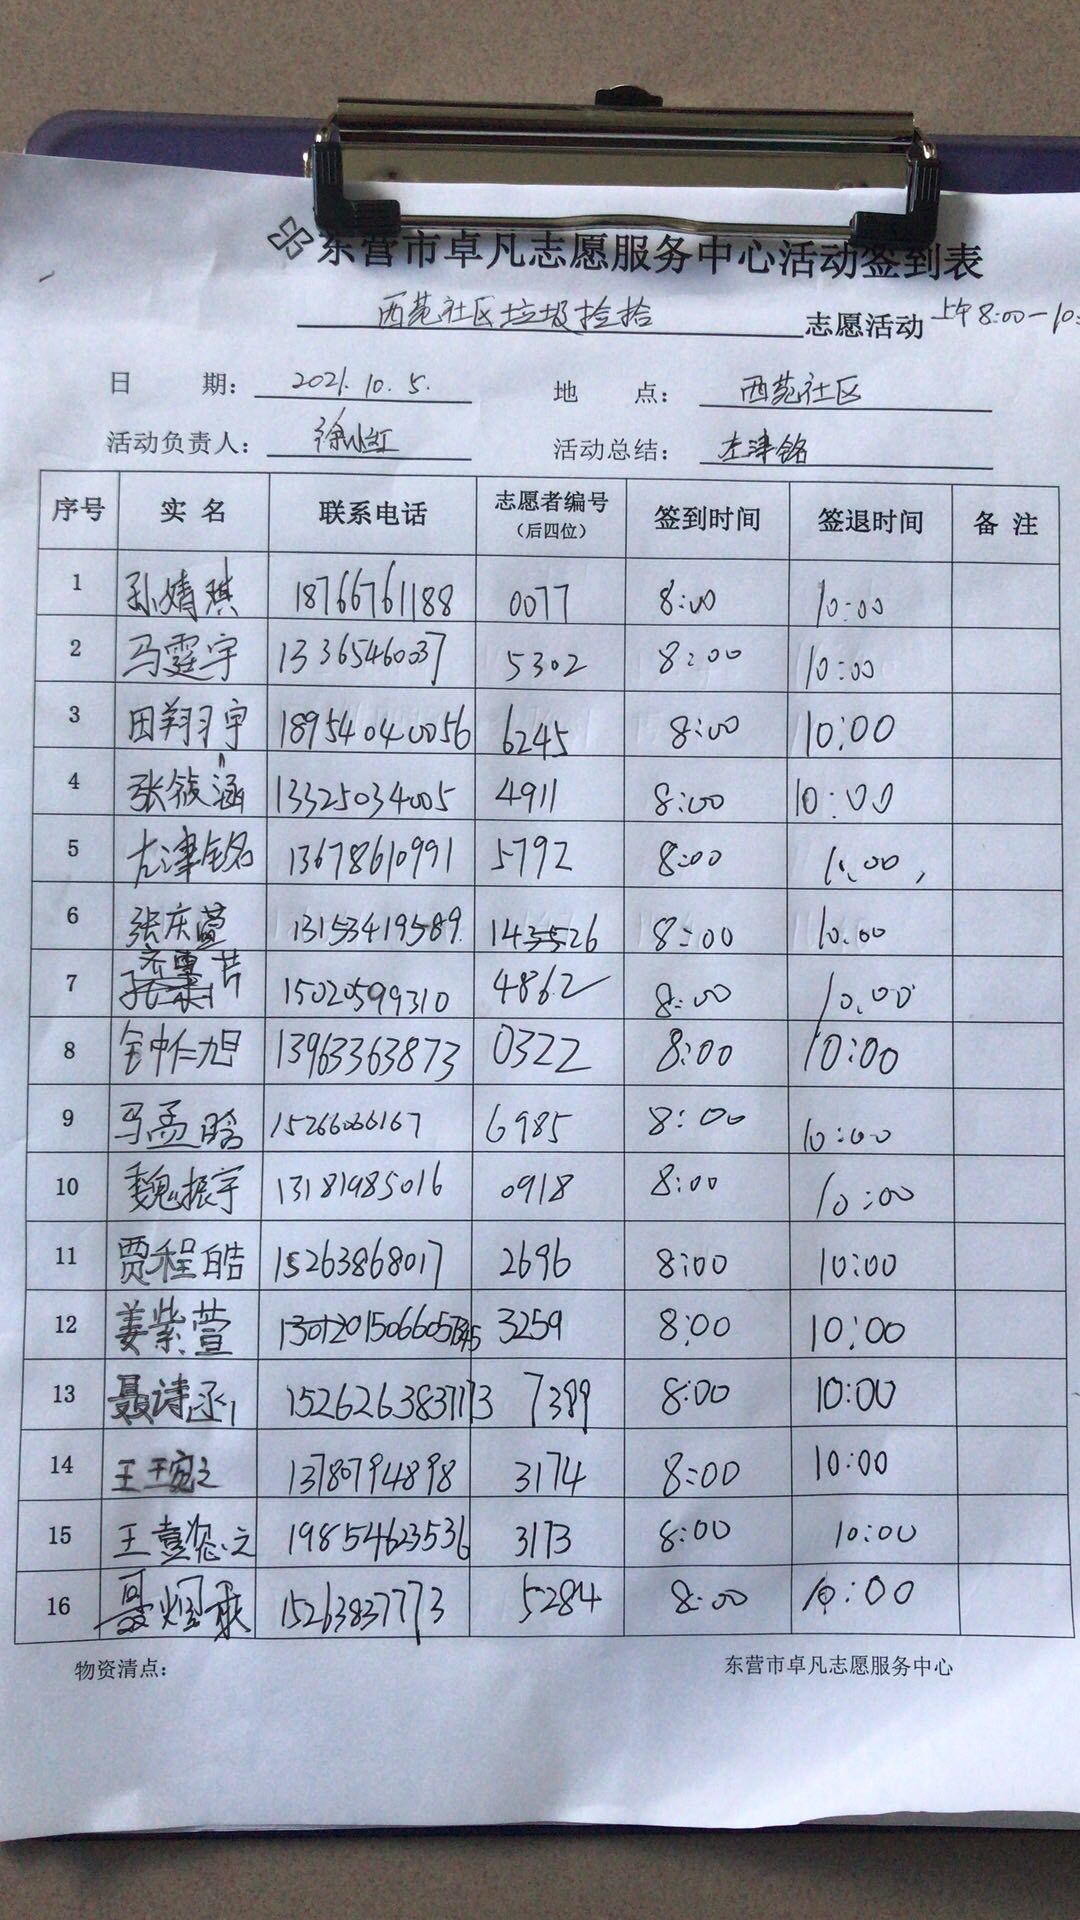 东营市卓凡志愿服务中心活动签到表
西苑社区垃圾捡拾 志愿活动 上午8:00-10:
日 期: 2021.10.5. 地 点: 西苑社区
活动负责人: 徐小红 活动总结: 左津铭
序号 实 名 联系电话 志愿者编号(后四位) 签到时间 签退时间 备 注
1 孙婧琪 18766761188 0077 8:00 10:00
2 马霆宇 13365460037 5302 8:00 10:00
3 田翔宇 18954040056 6245 8:00 10:00
4 张筱涵 13325034005 4911 8:00 10:00
5 左津铭 13678610991 5792 8:00 10.00
6 张庆萱 13153419589 8:00 10.00
7 15020599310 4862 8:00 10.00
8 仁旭 13963363873 0322 8:00 10:00
9 马孟晗 15266066167 6985 8:00 10:00
10 魏振宇 13181985016 0918 8:00 10:00
11 贾程皓 15263868017 2696 8:00 10:00
12 姜紫萱 3259 8:00 10:00
13 聂诗涵 7389 8:00 10:00
14 王 13780794898 3174 8:00 10:00
15 王 19854623536 3173 8:00 10:00
16 聂 15263837773 5284 8:00 10:00
物资清点: 东营市卓凡志愿服务中心